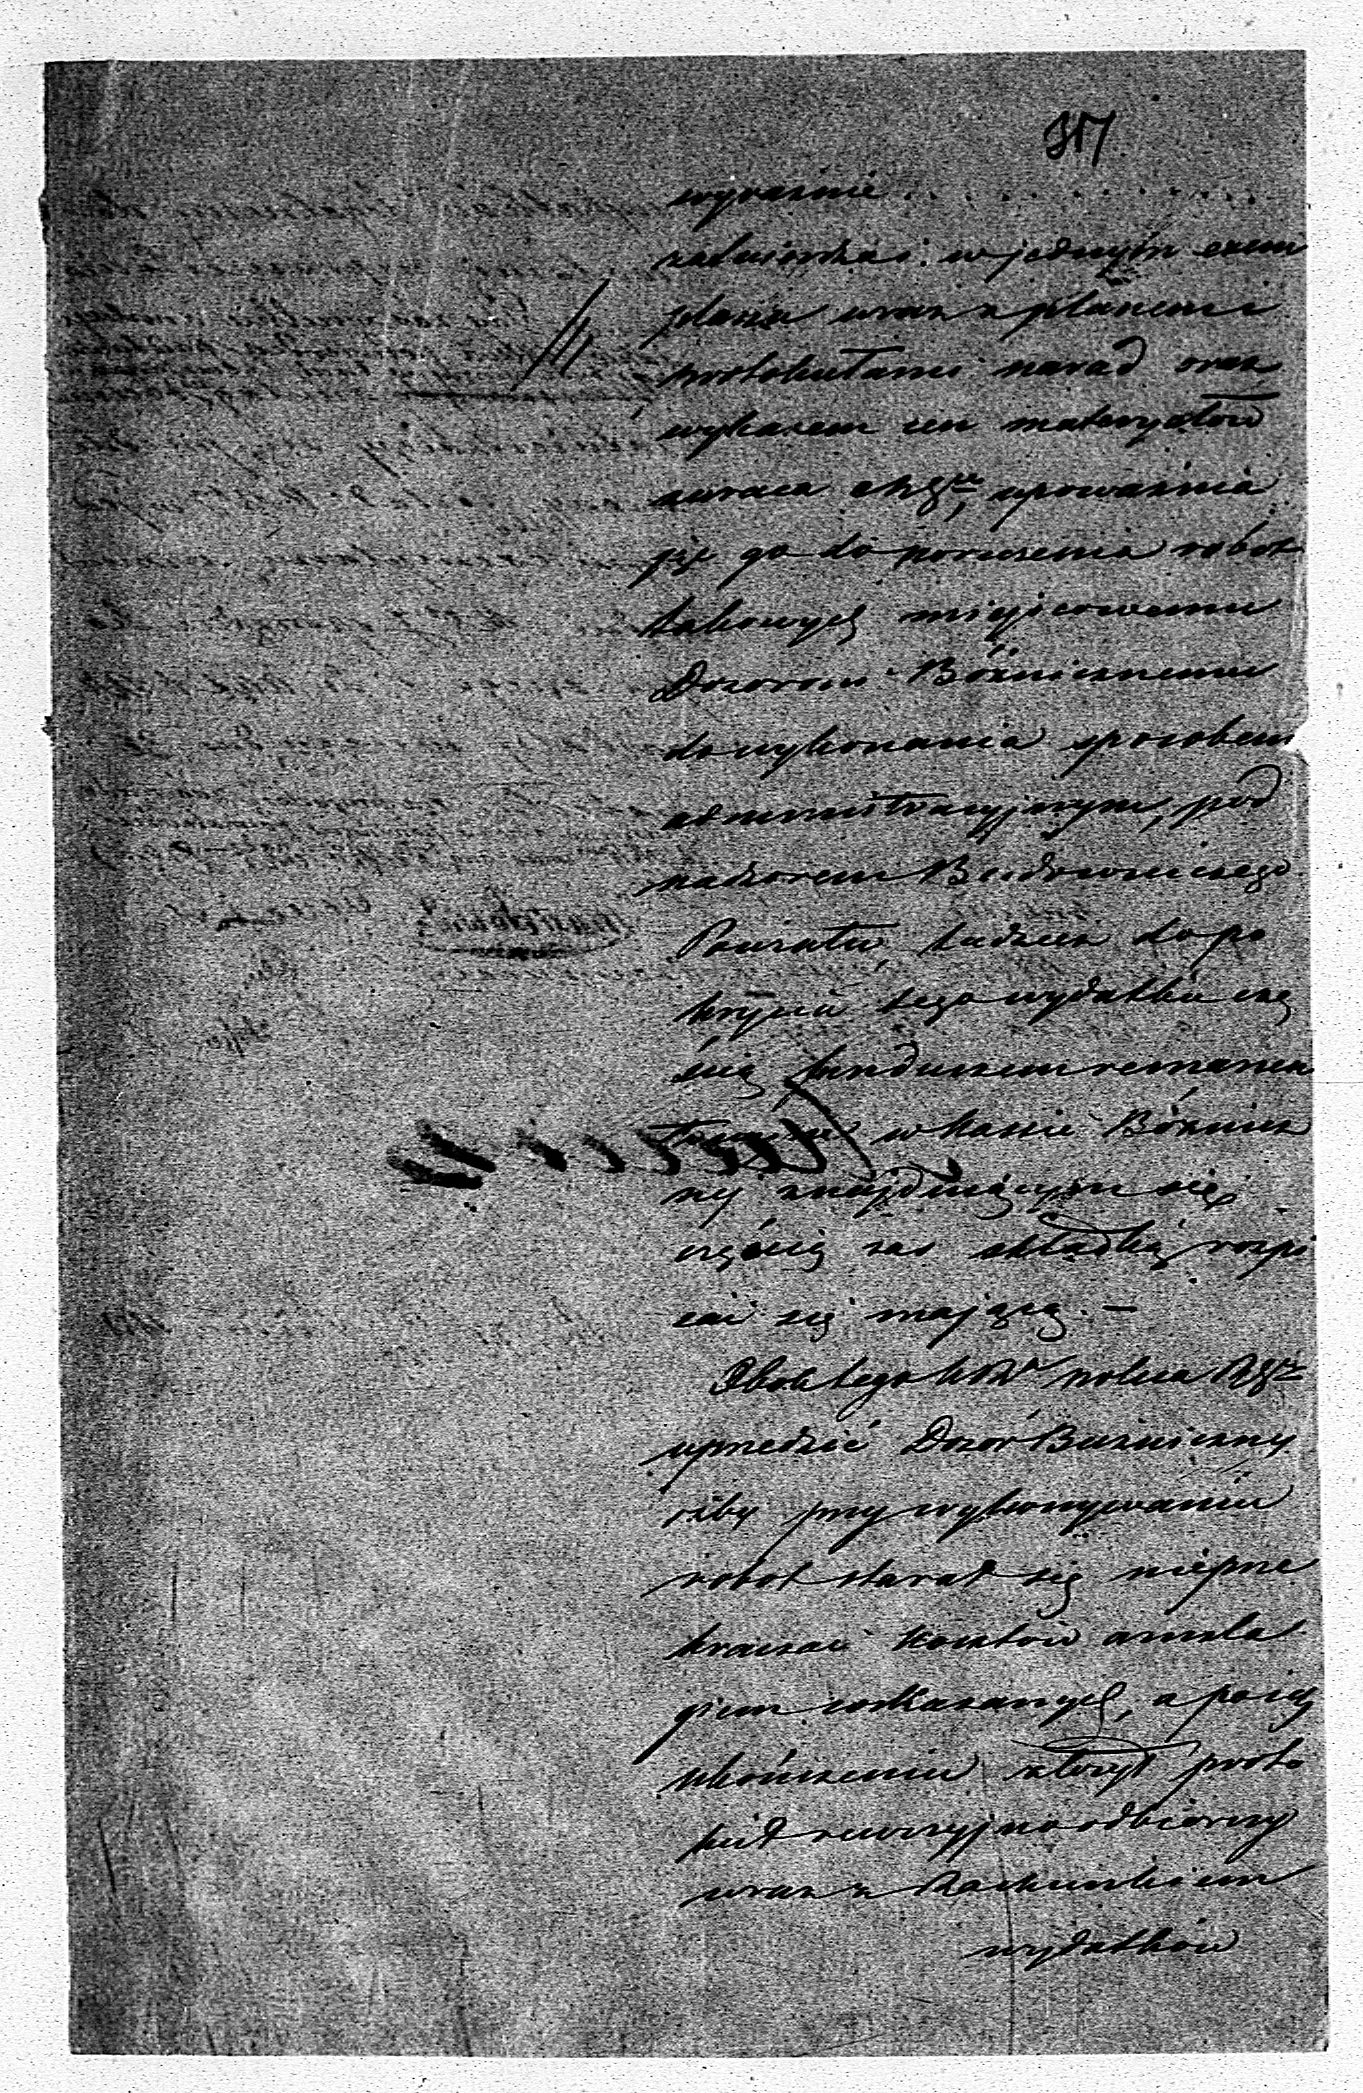 317
wyraźnie . . . . . . . . . . .
zatwierdza i w jednym exem
plarzu wraz z planem i
protokułami narad oraz
wykazem cen materyałów
zwraca upoważnia
jąc go do poruczenia robót
takowych miejscowemu
Dozorowi Bóżnicznemu
do wykonania sposobem
administracyjnym, pod
nadzorem Budowniczego
Powiatu, tudzież do po
krycia tego wydatku czę
ścią funduszem remanen
w kassie Bóżnicz
nej znajdującym się
częścią zaś składką rozpi
sać się mającą. —
Obok tego poleca
uprzedzić Dozór Bużniczny
żeby przy wykonywaniu
robot starał się nieprze
kraczać kosztów anszla
giem wskazanych, a po ich
ukończeniu złożył proto
kuł rewizyjno odbiorczy
wraz z Rachunkiem
wydatków